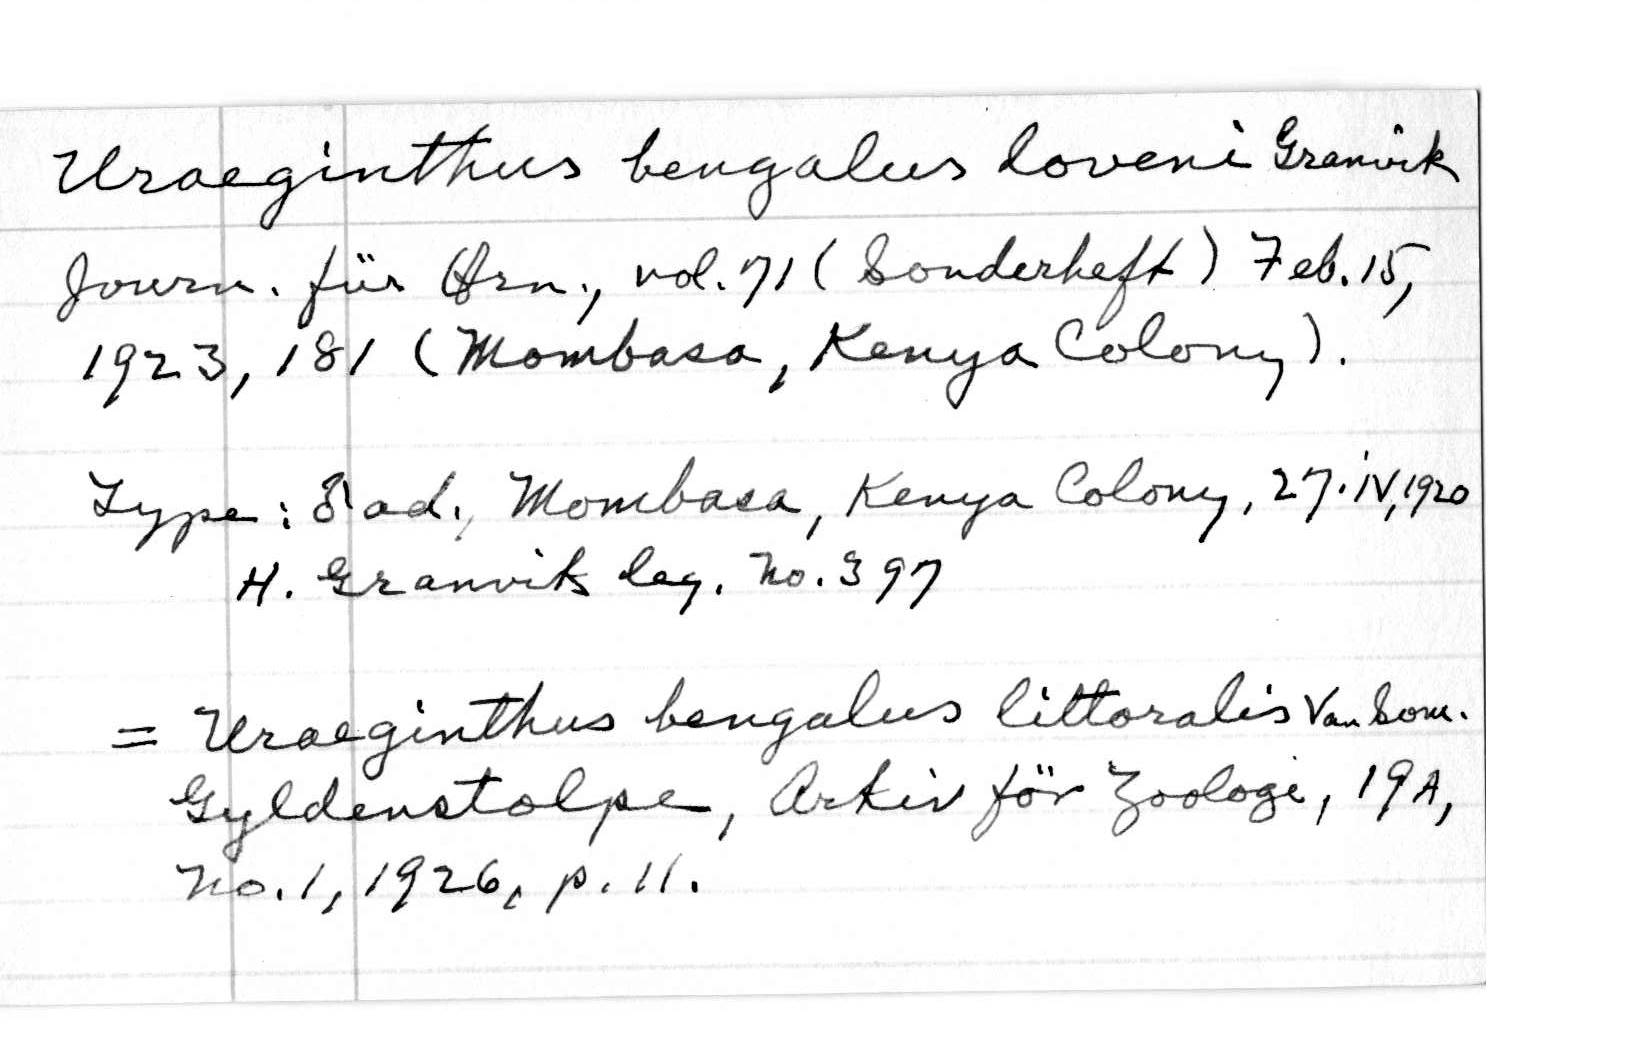 Uraeginthus bengalus loveni Granvik
Journ. für Orn., vol. 71 (Sonderheft) Feb. 15,
1923, 181 (Mombasa, Kenya Colony).
Type: ♂ ad., Mombasa, Kenya Colony, 27.IV,1920
H. Granvik leg. No. 397
= Uraeginthus bengalus littoralis Van Som.
Gyldenstolpe, Arkiv för Zoologi, 19A,
No. 1, 1926, p. 11.